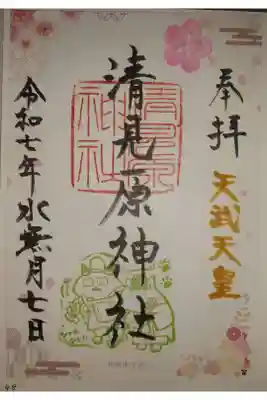 奉拝
天武天皇
清見原神社
清見原
神社
令和七年水無月七日